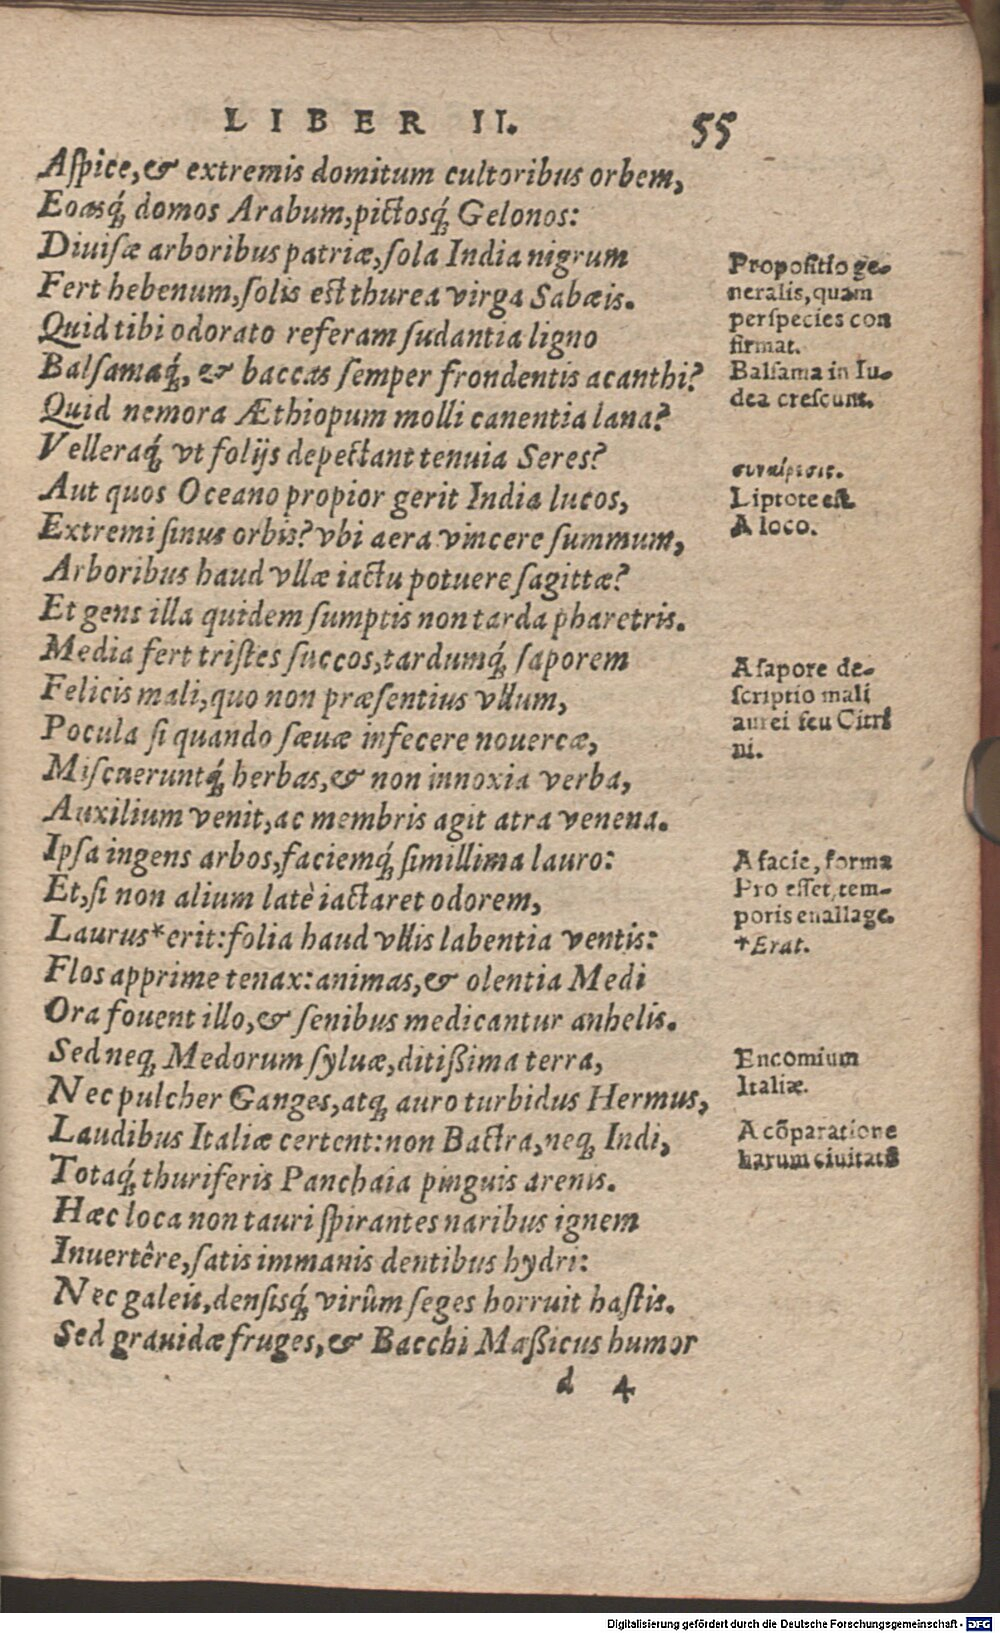 LIBER II. 55
Aſpice, & extremis domitum cultoribus orbem,
Eoasq́; domos Arabum, pictosq́; Gelonos:
Diuiſæ arboribus patriæ, ſola India nigrum
Fert hebenum, ſolis est thurea virga Sabæis.
Quid tibi odorato referam ſudantia ligno
Balſamaq́;, & baccas ſemper frondentis acanthi?
Quid nemora Æthiopum molli canentia lana?
Velleraq́; vt folijs depectant tenuia Seres?
Aut quos Oceano propior gerit India lucos,
Extremi ſinus orbis? vbi aera vincere ſummum,
Arboribus haud vllæ iactu potuere ſagittæ?
Et gens illa quidem ſumptis non tarda pharetris.
Media fert tristes ſuccos, tardumq́; ſaporem
Felicis mali, quo non præſentius vllum,
Pocula ſi quando ſæuæ infecere nouercæ,
Miſcueruntq́; herbas, & non innoxia verba,
Auxilium venit, ac membris agit atra venena.
Ipſa ingens arbos, faciemq́; ſimillima lauro:
Et, ſi non alium latè iactaret odorem,
Laurus*erit: folia haud vllis labentia ventis:
Flos apprime tenax: animas, & olentia Medi
Ora fouent illo, & ſenibus medicantur anhelis.
Sed neq; Medorum ſyluæ, ditißima terra,
Nec pulcher Ganges, atq; auro turbidus Hermus,
Laudibus Italiæ certent: non Bactra, neq; Indi,
Totaq́; thuriferis Panchaia pinguis arenis.
Hæc loca non tauri ſpirantes naribus ignem
Inuertêre, ſatis immanis dentibus hydri:
Nec galeis, denſisq́; virûm ſeges horruit haſtis.
Sed grauidæ fruges, & Bacchi Maßicus humor
d 4
Propoſitio ge-
neralis, quam
per ſpecies con
firmat.
Balſama in Iu-
dea creſcunt.
συναίρεσις.
Liptote est
A loco.
A ſapore de-
ſcriptio mali
aurei ſeu Citri
ni.
A facie, forma
Pro eſſet, tem-
poris enallage.
*Erat.
Encomium
Italiæ.
A cõparatione
harum ciuitatũ
Digitalisierung gefördert durch die Deutsche Forschungsgemeinschaft - DFG